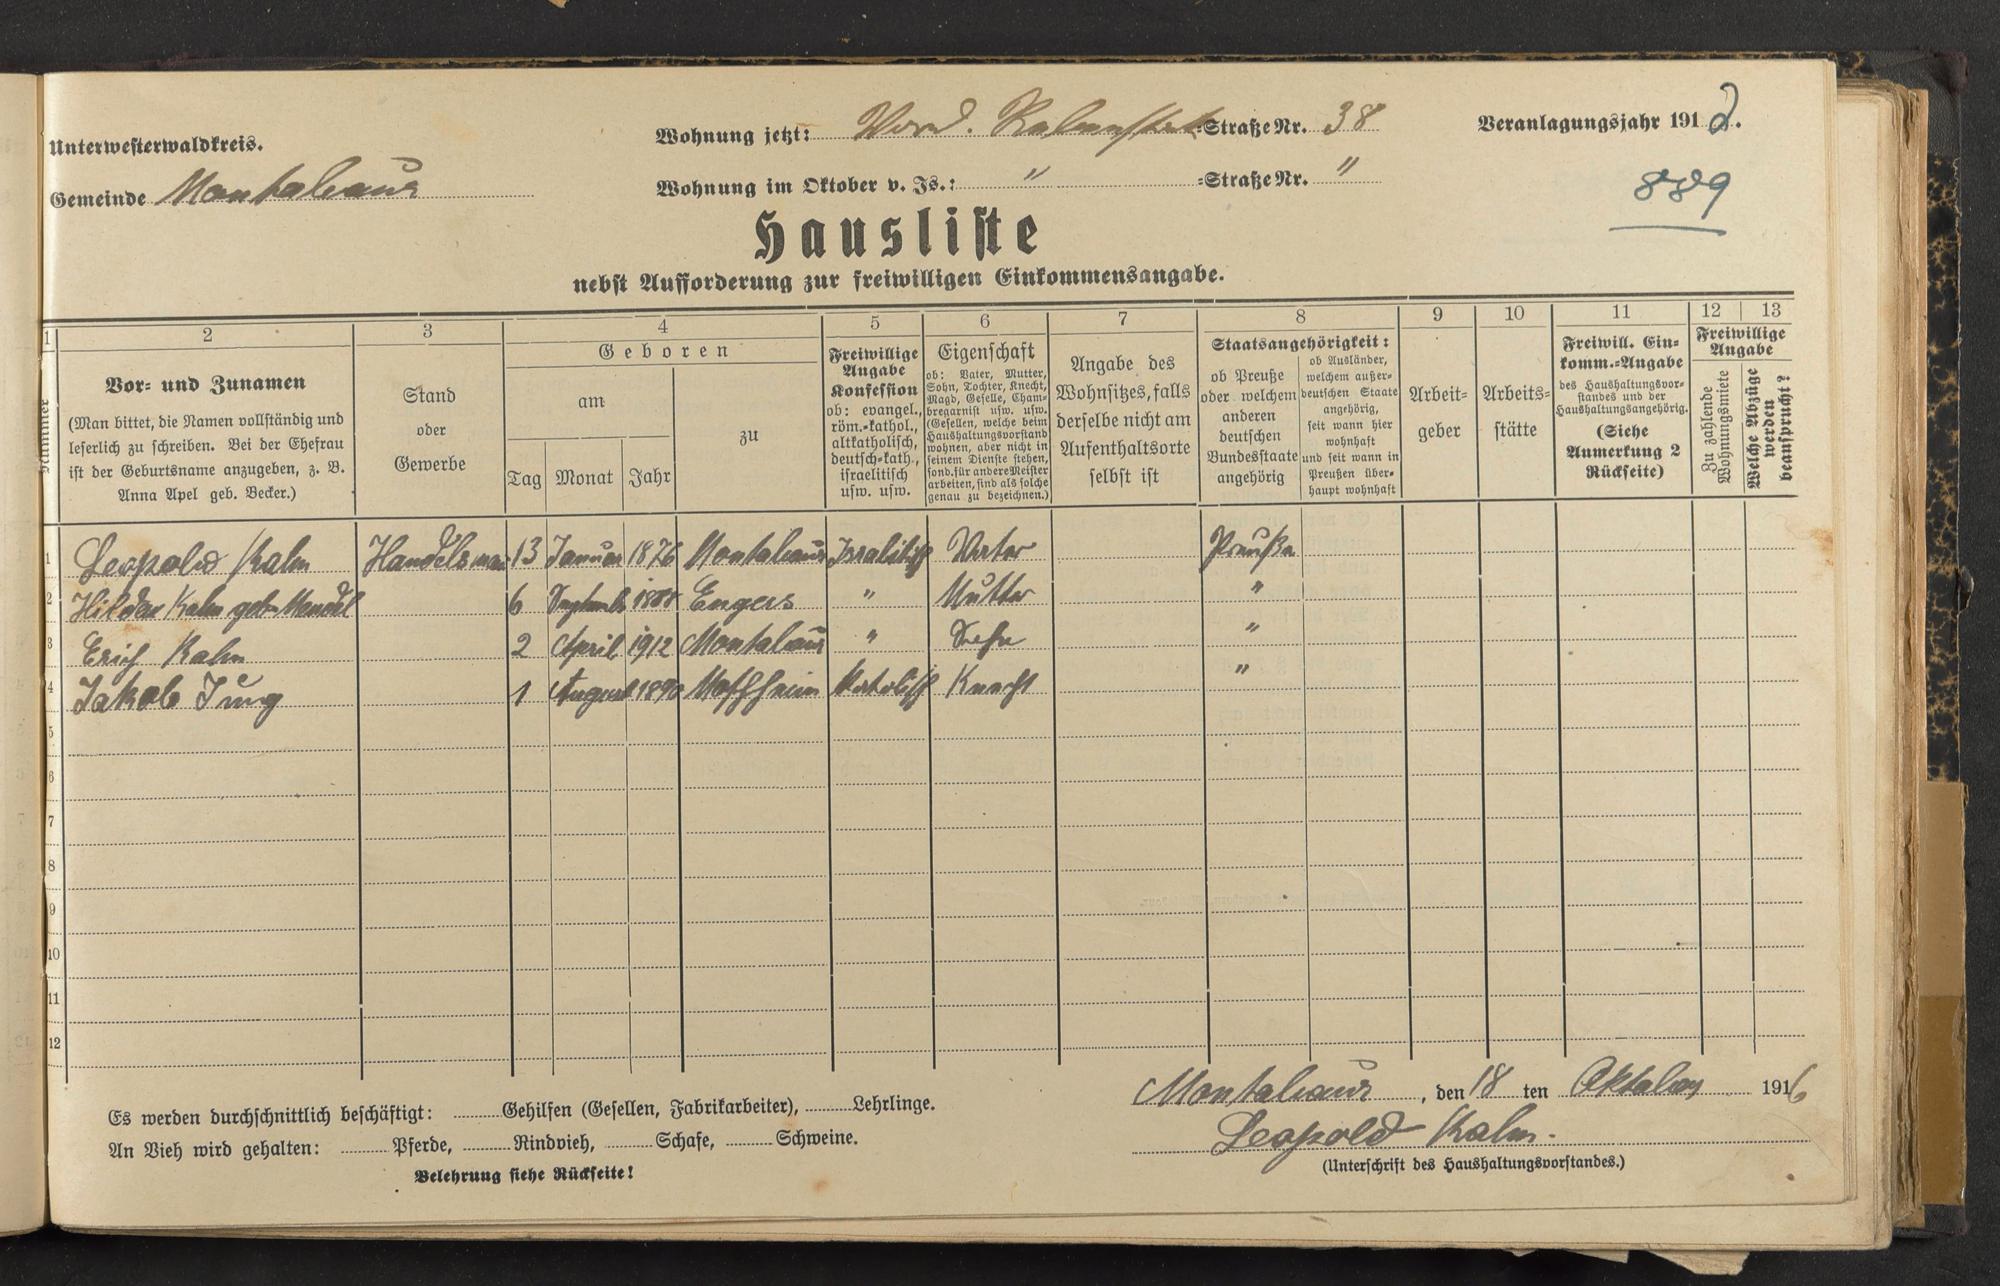 Unterwesterwaldkreis.
Gemeinde Montabaur
Wohnung jetzt: Vord. -Straße Nr. 38
Wohnung im Oktober v. Js.: " -Straße Nr. "
Veranlagungsjahr 191
889
Hausliste
nebst Aufforderung zur freiwilligen Einkommensangabe.
1 2 3 4 5 6 7 8 9 10 11 12 13
Nummer
Vor- und Zunamen
(Man bittet, die Namen vollständig und
leserlich zu schreiben. Bei der Ehefrau
ist der Geburtsname anzugeben, z. B.
Anna Apel geb. Becker.)
Stand
oder
Gewerbe
Geboren
am
Tag Monat Jahr
zu
Freiwillige
Angabe
Konfession
ob: evangel.,
röm.-kathol.,
altkatholisch,
deutsch-kath.,
israelitisch
usw. usw.
Eigenschaft
ob: Vater, Mutter,
Sohn, Tochter, Knecht,
Magd, Geselle, Cham-
bregarnist usw. usw.
(Gesellen, welche beim
Haushaltungsvorstand
wohnen, aber nicht in
seinem Dienste stehen,
sond. für andere Meister
arbeiten, sind als solche
genau zu bezeichnen.)
Angabe des
Wohnsitzes, falls
derselbe nicht am
Aufenthaltsorte
selbst ist
Staatsangehörigkeit:
ob Preuße
oder welchem
anderen
deutschen
Bundesstaate
angehörig
ob Ausländer,
welchem außer-
deutschen Staate
angehörig,
seit wann hier
wohnhaft
und seit wann in
Preußen über-
haupt wohnhaft
Arbeit-
geber
Arbeits-
stätte
Freiwill. Ein-
komm.-Angabe
des Haushaltungsvor-
standes und der
Haushaltungsangehörig.
(Siehe
Anmerkung 2
Rückseite)
Freiwillige
Angabe
Zu zahlende
Wohnungsmiete
Welche Abzüge
werden
beansprucht?
1 Leopold Kahn Handelsmann 13 Januar 1876 Montabaur Isralitisch Vater Preuße
2 Kahn geb. Mendel 6 Septemb 1888 Engers " Mutter "
3 Erich Kahn 2 April 1912 Montabaur " Sohn "
4 Jakob Jung 1 August 1890 Katolisch Knecht "
5
6
7
8
9
10
11
12
Es werden durchschnittlich beschäftigt: Gehilfen (Gesellen, Fabrikarbeiter), Lehrlinge.
An Vieh wird gehalten: Pferde, Rindvieh, Schafe, Schweine.
Belehrung siehe Rückseite!
Montabaur, den 18 ten Oktober 1916
Leopold Kahn.
(Unterschrift des Haushaltungsvorstandes.)